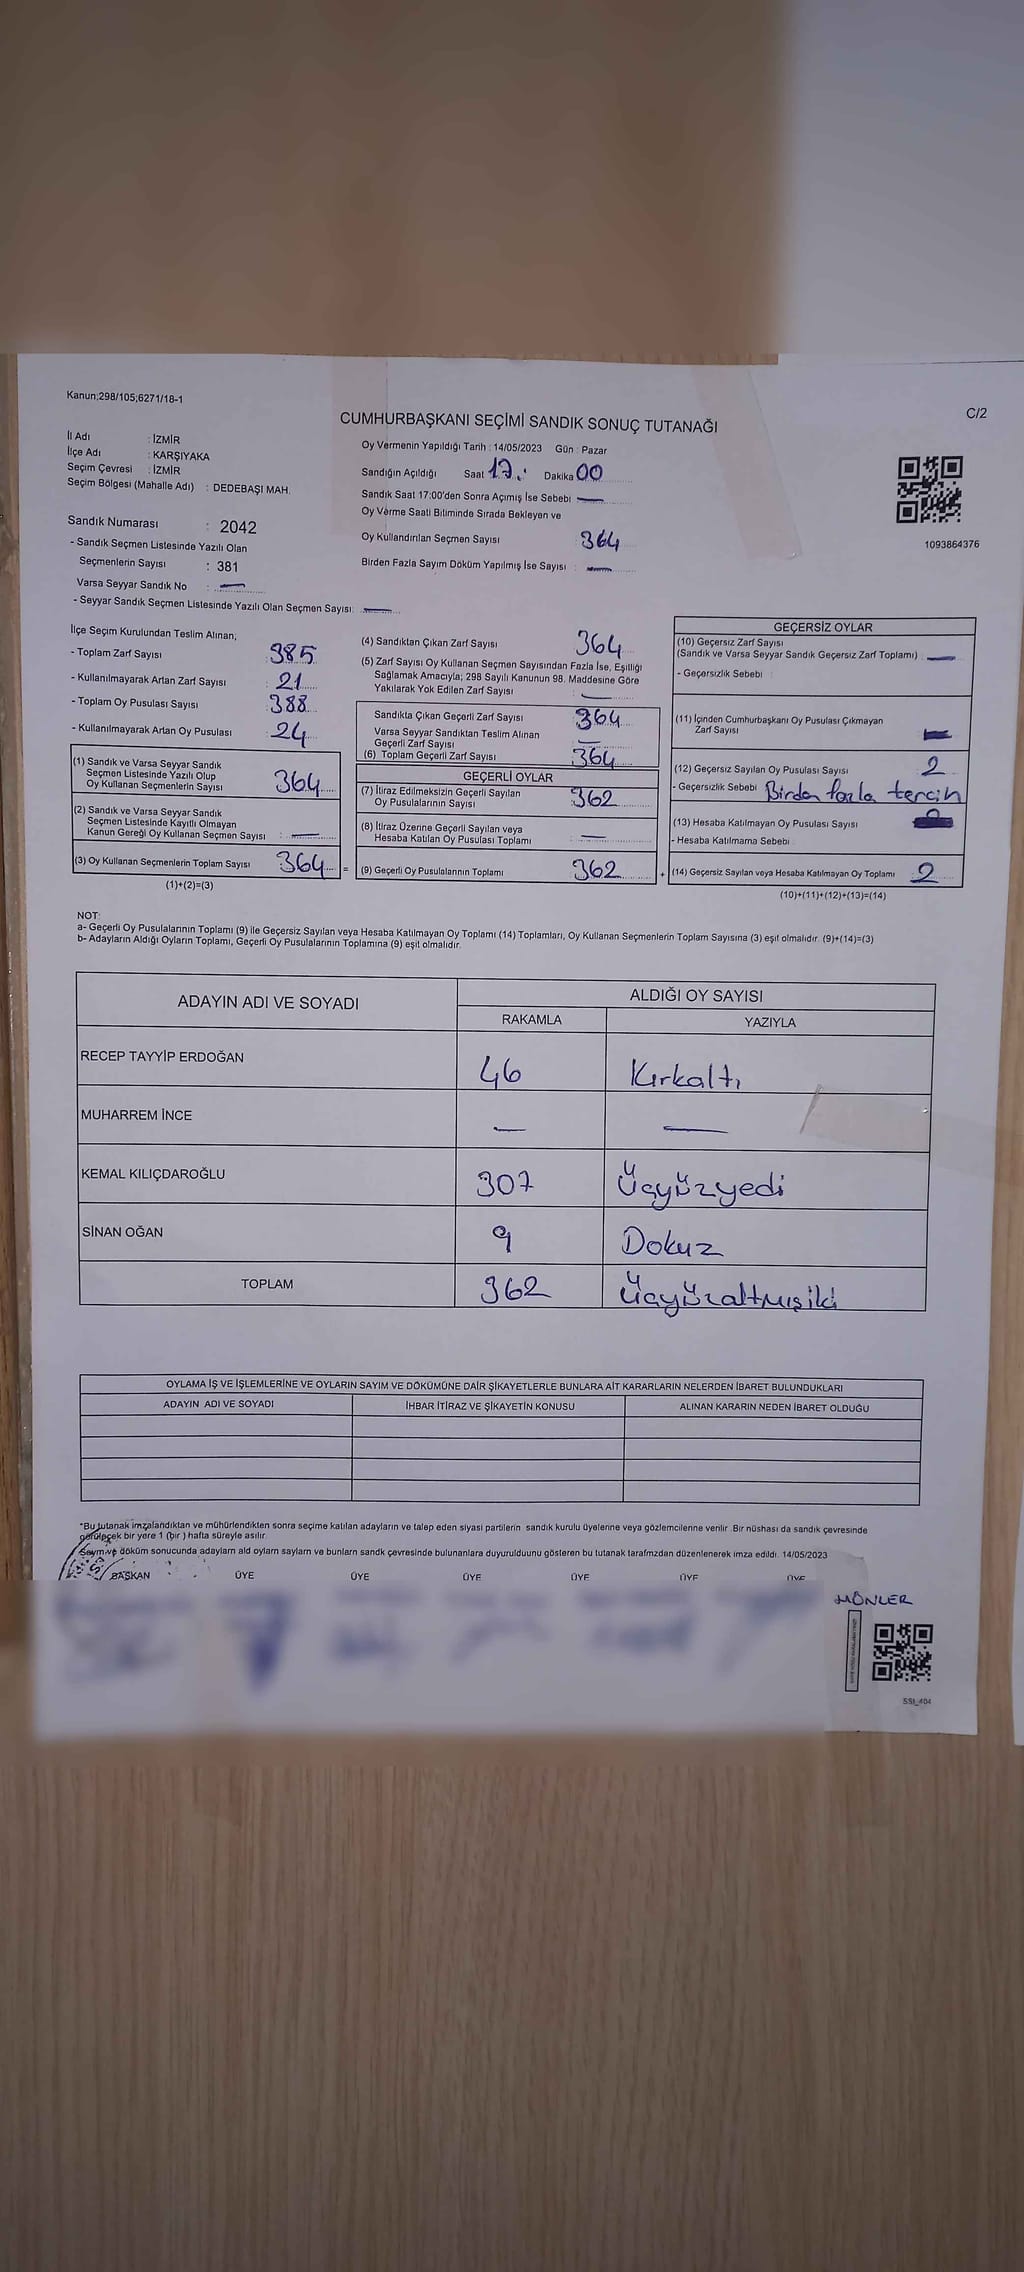 Kanun:298/105;6271/18-1
C/2
CUMHURBAŞKANI SEÇİMİ SANDIK SONUÇ TUTANAĞI
İl Adı : İZMİR
İlçe Adı : KARŞIYAKA
Seçim Çevresi : İZMİR
Seçim Bölgesi (Mahalle Adı) : DEDEBAŞI MAH.
Sandık Numarası : 2042
- Sandık Seçmen Listesinde Yazılı Olan
Seçmenlerin Sayısı : 381
Varsa Seyyar Sandık No : —
- Seyyar Sandık Seçmen Listesinde Yazılı Olan Seçmen Sayısı: —
Oy Vermenin Yapıldığı Tarih : 14/05/2023 Gün : Pazar
Sandığın Açıldığı Saat 17 : Dakika 00
Sandık Saat 17:00'den Sonra Açımış İse Sebebi —
Oy Verme Saati Bitiminde Sırada Bekleyen ve
Oy Kullandırılan Seçmen Sayısı 364
Birden Fazla Sayım Döküm Yapılmış İse Sayısı : —
1093864376
İlçe Seçim Kurulundan Teslim Alınan,
- Toplam Zarf Sayısı : 385
- Kullanılmayarak Artan Zarf Sayısı : 21
- Toplam Oy Pusulası Sayısı : 388
- Kullanılmayarak Artan Oy Pusulası 24
(1) Sandık ve Varsa Seyyar Sandık
Seçmen Listesinde Yazılı Olup
Oy Kullanan Seçmenlerin Sayısı 364
(2) Sandık ve Varsa Seyyar Sandık
Seçmen Listesinde Kayıtlı Olmayan
Kanun Gereği Oy Kullanan Seçmen Sayısı : —
(3) Oy Kullanan Seçmenlerin Toplam Sayısı : 364 =
(1)+(2)=(3)
(4) Sandıktan Çıkan Zarf Sayısı 364
(5) Zarf Sayısı Oy Kullanan Seçmen Sayısından Fazla İse, Eşitliği
Sağlamak Amacıyla; 298 Sayılı Kanunun 98. Maddesine Göre
Yakılarak Yok Edilen Zarf Sayısı : —
Sandıkta Çıkan Geçerli Zarf Sayısı 364
Varsa Seyyar Sandıktan Teslim Alınan
Geçerli Zarf Sayısı —
(6) Toplam Geçerli Zarf Sayısı : 364
GEÇERLİ OYLAR
(7) İtiraz Edilmeksizin Geçerli Sayılan
Oy Pusulalarının Sayısı 362
(8) İtiraz Üzerine Geçerli Sayılan veya
Hesaba Katılan Oy Pusulası Toplamı : —
(9) Geçerli Oy Pusulalarının Toplamı 362 +
GEÇERSİZ OYLAR
(10) Geçersiz Zarf Sayısı
(Sandık ve Varsa Seyyar Sandık Geçersiz Zarf Toplamı) : —
- Geçersizlik Sebebi :
(11) İçinden Cumhurbaşkanı Oy Pusulası Çıkmayan
Zarf Sayısı —
(12) Geçersiz Sayılan Oy Pusulası Sayısı 2
- Geçersizlik Sebebi Birden fazla tercih
(13) Hesaba Katılmayan Oy Pusulası Sayısı
- Hesaba Katılmama Sebebi :
(14) Geçersiz Sayılan veya Hesaba Katılmayan Oy Toplamı 2
(10)+(11)+(12)+(13)=(14)
NOT:
a- Geçerli Oy Pusulalarının Toplamı (9) ile Geçersiz Sayılan veya Hesaba Katılmayan Oy Toplamı (14) Toplamları, Oy Kullanan Seçmenlerin Toplam Sayısına (3) eşit olmalıdır. (9)+(14)=(3)
b- Adayların Aldığı Oyların Toplamı, Geçerli Oy Pusulalarının Toplamına (9) eşit olmalıdır.
ADAYIN ADI VE SOYADI
ALDIĞI OY SAYISI
RAKAMLA YAZIYLA
RECEP TAYYİP ERDOĞAN 46 Kırkaltı
MUHARREM İNCE — —
KEMAL KILIÇDAROĞLU 307 Üçyüzyedi
SİNAN OĞAN 9 Dokuz
TOPLAM 362 Üçyüzaltmışiki
OYLAMA İŞ VE İŞLEMLERİNE VE OYLARIN SAYIM VE DÖKÜMÜNE DAİR ŞİKAYETLERLE BUNLARA AİT KARARLARIN NELERDEN İBARET BULUNDUKLARI
ADAYIN ADI VE SOYADI İHBAR İTİRAZ VE ŞİKAYETİN KONUSU ALINAN KARARIN NEDEN İBARET OLDUĞU
"Bu tutanak imzalandıktan ve mühürlendikten sonra seçime katılan adayların ve talep eden siyasi partilerin sandık kurulu üyelerine veya gözlemcilerine verilir. Bir nüshası da sandık çevresinde
görülecek bir yere 1 (bir ) hafta süreyle asılır.
Sayım ve döküm sonucunda adayların ald oyların saylarn ve bunların sandk çevresinde bulunanlara duyurulduunu gösteren bu tutanak tarafmzdan düzenlenerek imza edildi. 14/05/2023
BAŞKAN ÜYE ÜYE ÜYE ÜYE ÜYE ÜYE
SSI_404